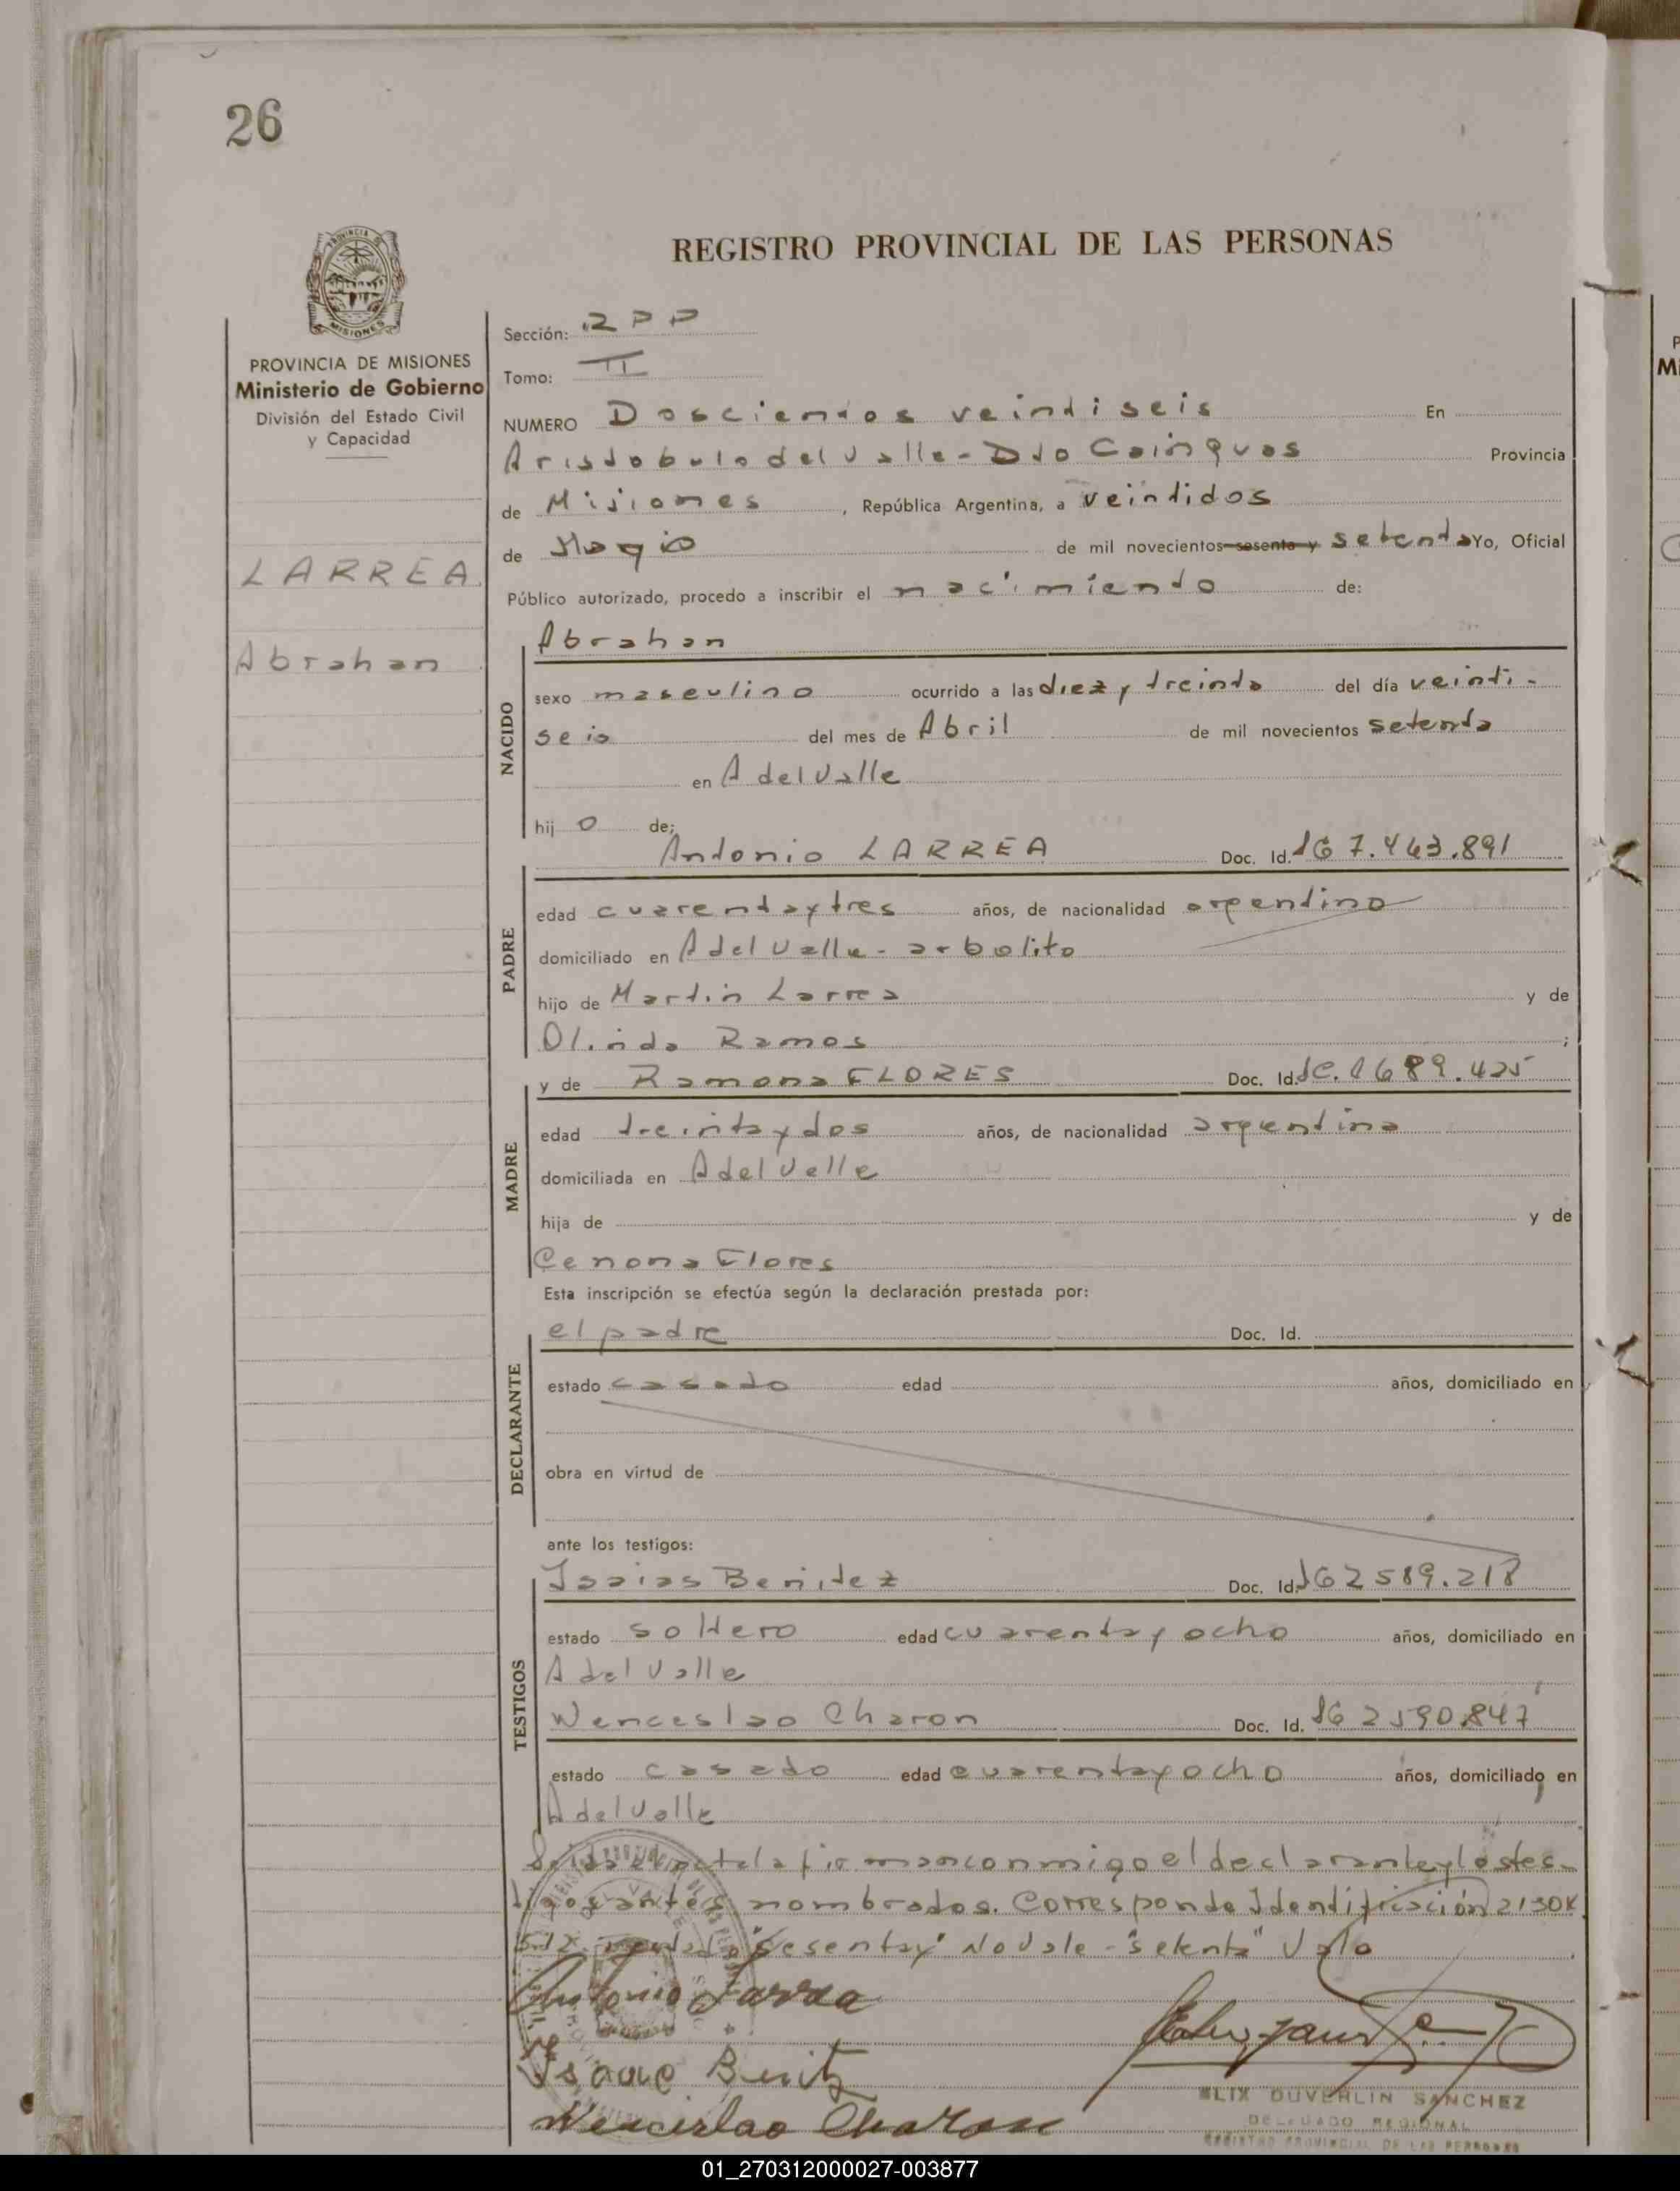 26
REGISTRO PROVINCIAL DE LAS PERSONAS
PROVINCIA DE MISIONES
Ministerio de Gobierno
División del Estado Civil
y Capacidad
LARREA
Abrahan
Sección: RPP
Tomo: II
NUMERO Doscientos veintiseis En
Aristobulo del Valle - Dto Cainguas Provincia
de Misiones, República Argentina, a veintidos
de Mayo de mil novecientos sesenta y setenta Yo, Oficial
Público autorizado, procedo a inscribir el nacimiento de:
NACIDO
Abrahan
sexo masculino ocurrido a las diez y treinta del día veinti-
seis del mes de Abril de mil novecientos setenta
en A del Valle
hijo de;
PADRE
Antonio LARREA Doc. Id. 7.463.891
edad cuarenta y tres años, de nacionalidad argentino
domiciliado en A del Valle - arbolito
hijo de Martin Larrea y de
Olinda Ramos ;
MADRE
y de Ramona FLORES Doc. Id. 1689.425
edad treinta y dos años, de nacionalidad argentina
domiciliada en A del Valle
hija de y de
Cenona Flores
Esta inscripción se efectúa según la declaración prestada por:
DECLARANTE
el padre Doc. Id.
estado casado edad años, domiciliado en
obra en virtud de
ante los testigos:
TESTIGOS
Isaias Benitez Doc. Id. 2589.218
estado soltero edad cuarenta y ocho años, domiciliado en
A del Valle
Wenceslao Charon Doc. Id. 2590.847
estado casado edad cuarenta y ocho años, domiciliado en
A del Valle
Leida el acta la firman conmigo el declarante y los tes-
tigos antes nombrados. Corresponde Identificación 2130X
"sesenta y" No vale - "setenta" Vale
Antonio Larrea
Isaac Benitz
Wenceslao Charon
ELIX DUVERLIN SANCHEZ
DELEGADO REGIONAL
REGISTRO PROVINCIAL DE LAS PERSONAS
01_270312000027-003877